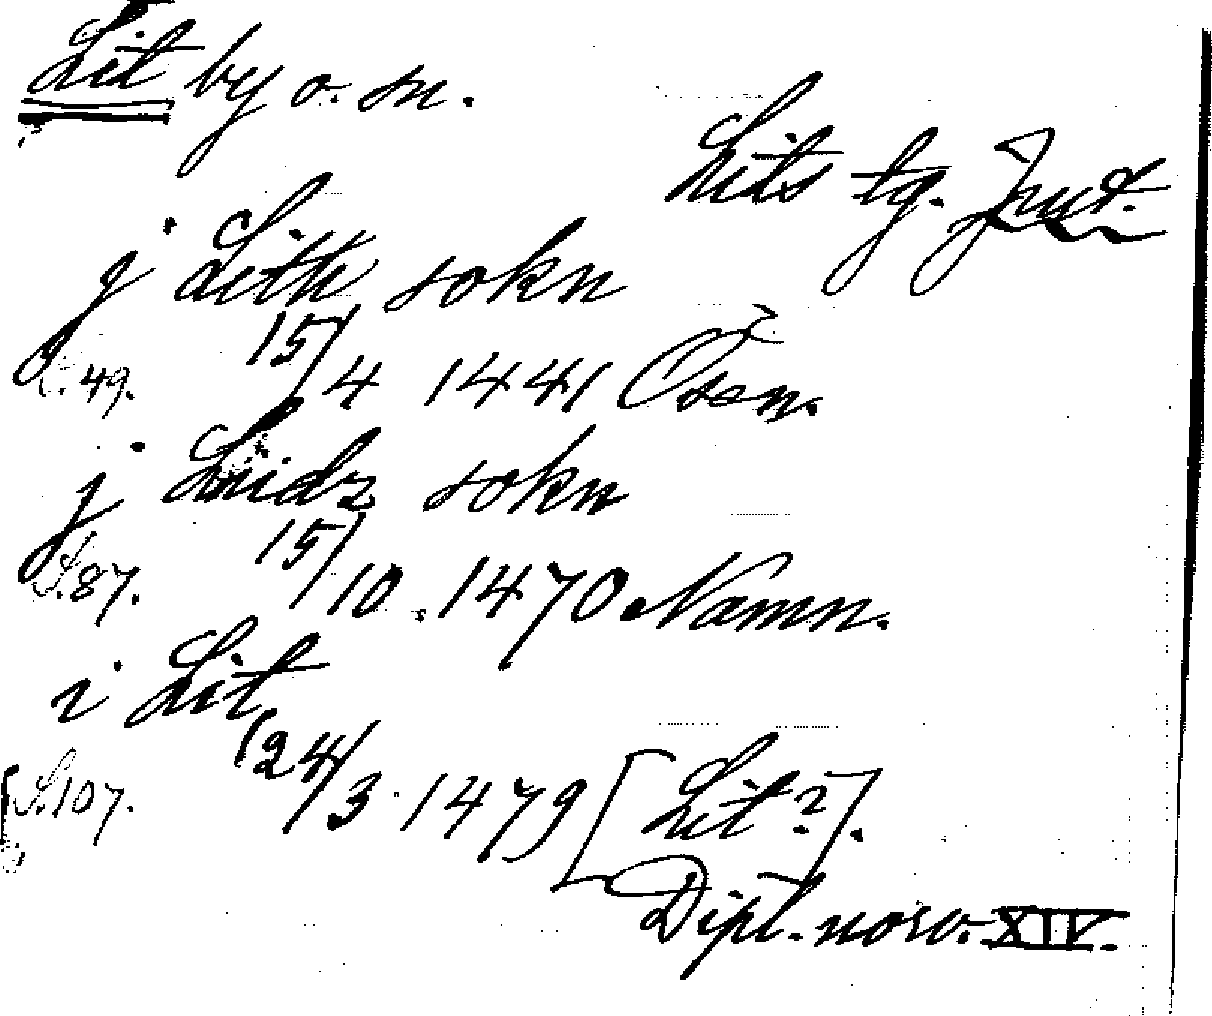 Lit by o. sn.
Lits tg. Jmt.
j Lith sokn
S. 49. 15/4 1441 Ösen.
j Liidz sokn
S. 87. 15/10 1470 Namn.
i Lit
S. 107. 24/3 1479 [Lit?].
Dipl. norv. XIV.